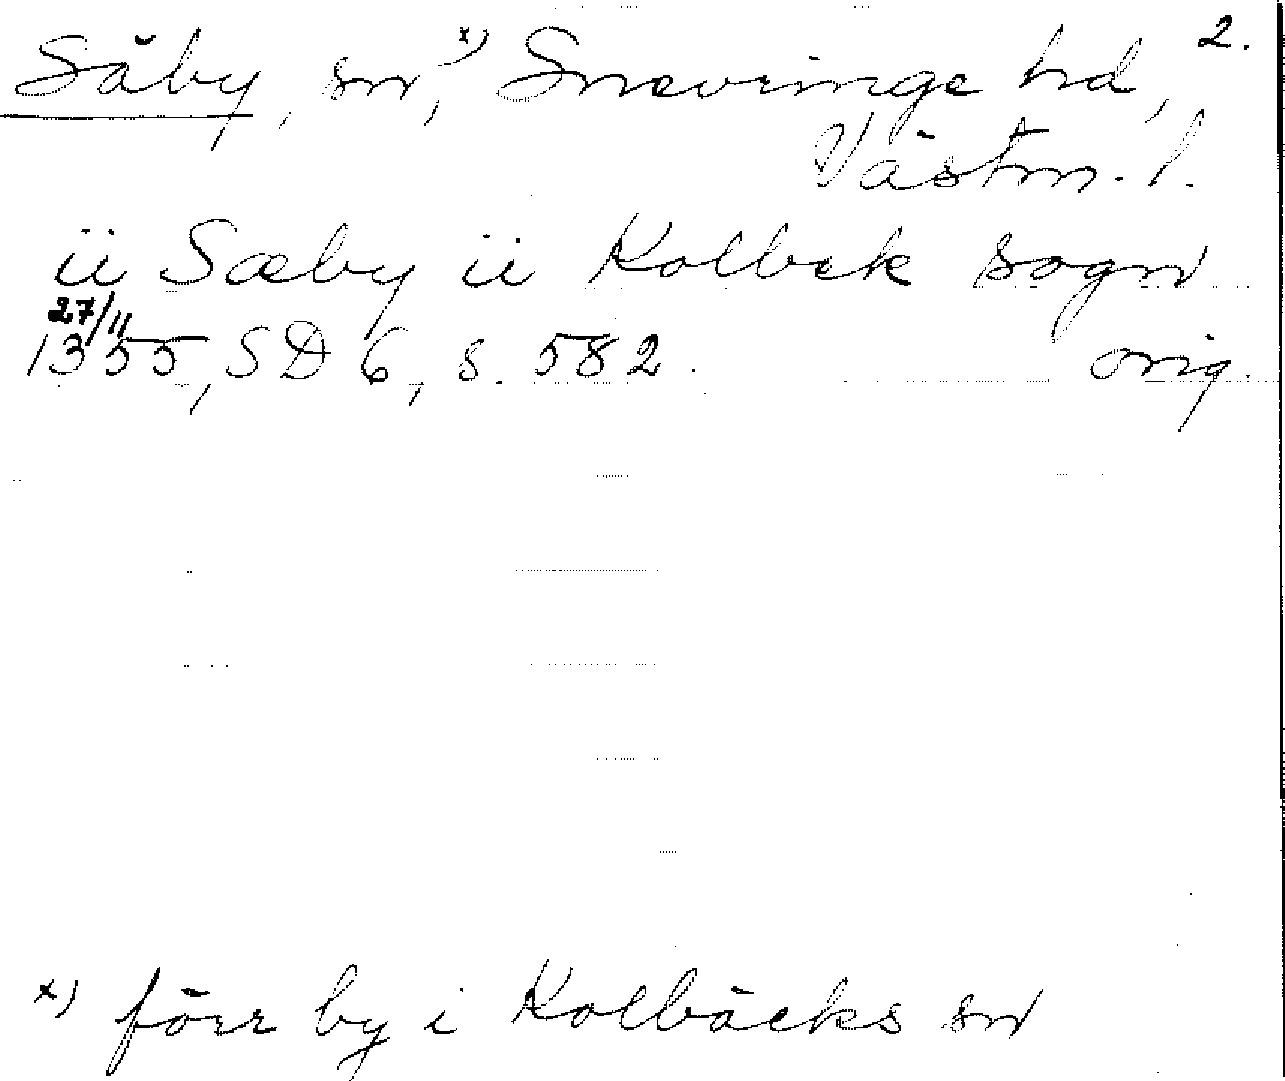 Säby, sn, x) Snevringe hd, 2.
Västm. l.
ii Sæby ii Kolbek sogn
27/11
1355, SD 6, s. 582. orig.
x) förr by i Kolbäcks sn